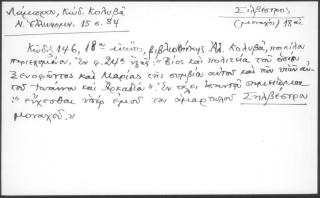 Λάμπρου, Κώδ. Κολυβᾶ
Σίλβεστρος
Ν. Ἑλληνομν. 15 σ. 84
(μοναχός) 18 αἰ.
Κῶδιξ 146, 18ου αἰῶνος, βιβλιοθήκης Ἀλ. Κολυβᾶ, ποικίλου
περιεχομένου. Ἐν φ. 24α λέξις: "Βίος καὶ πολιτεία τοῦ ὁσίου
Ξενοφῶντος καὶ Μαρίας τῆς συμβίας αὐτοῦ καὶ τῶν υἱῶν αὐ-
τοῦ Ἰωάννου καὶ Ἀρκαδίου". Ἐν τέλει σημείωμα
: "εὔχεσθαι ὑπὲρ ἐμοῦ τοῦ ἁμαρτωλοῦ Σηλβέστρου
μοναχοῦ".